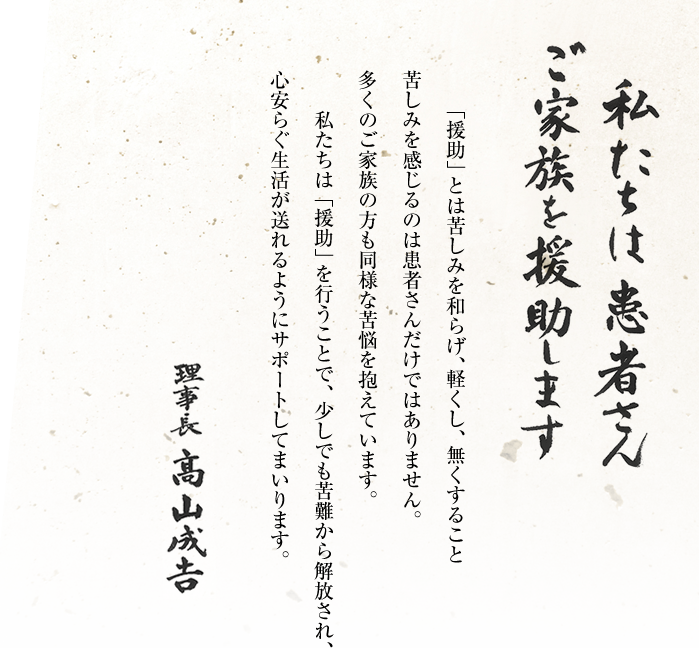 私たちは患者さん
ご家族を援助します
「援助」とは苦しみを和らげ、軽くし、無くすること
苦しみを感じるのは患者さんだけではありません。
多くのご家族の方も同様な苦悩を抱えています。
私たちは「援助」を行うことで、少しでも苦難から解放され、
心安らぐ生活が送れるようにサポートしてまいります。
理事長 髙山成吉